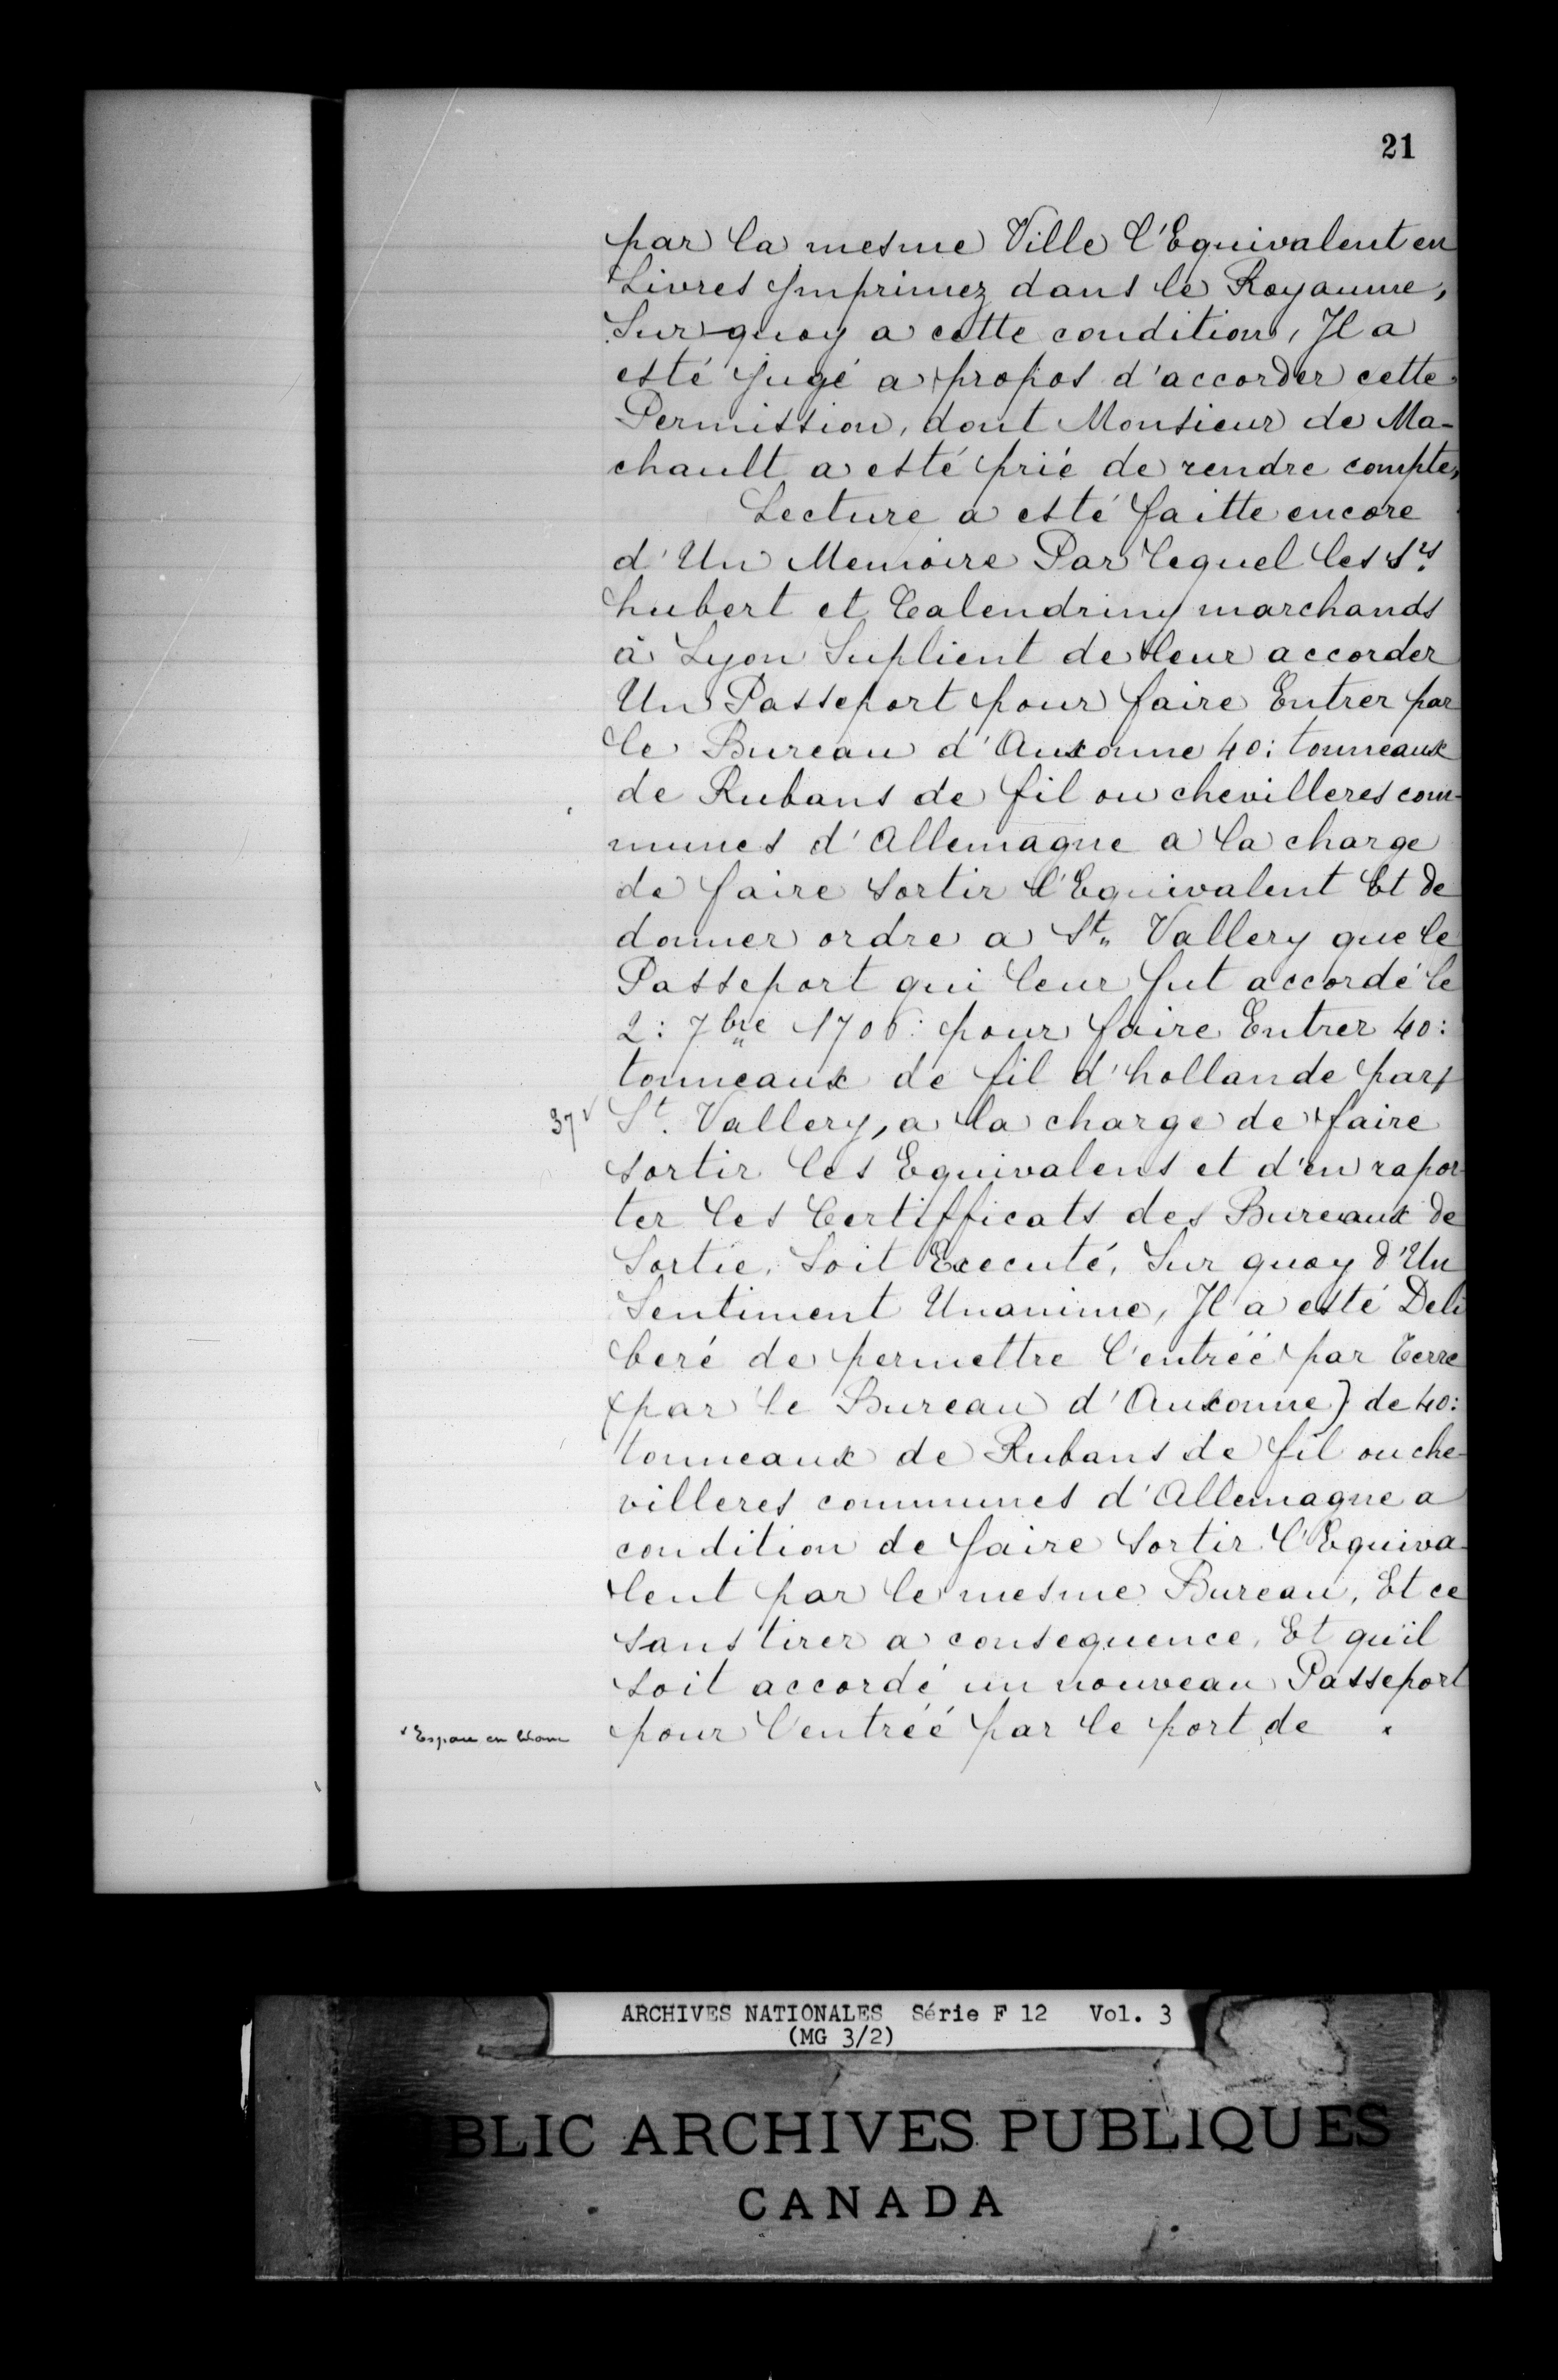 21
par la mesme Ville l'Equivalent en
Livres Jmprimez dans le Royaume,
Sur quoy a cette condition, Jl a
esté jugé a propos d'accorder cette
Permission, dont Monsieur de Ma-
chault a esté prié de rendre compte,
Lecture a esté faitte encore
d'Un Memoire Par lequel les Srs
hubert et Calendriny marchands
à Lyon Suplient de leur accorder
Un Passeport pour faire Entrer par
le Bureau d'Auxonne 40: tonneaux
de Rubans de fil ou chevilleres com-
munes d'Allemagne a la charge
de faire sortir l'Equivalent Et de
donner ordre a St. Vallery que le
Passeport qui leur fut accordé le
2: 7bre 1706: pour faire Entrer 40:
tonneaux de fil d'hollande par
37v St. Vallery, a la charge de faire
sortir les Equivalens et d'en rapor-
ter les Certifficats des Bureaux de
Sortie, Soit Executé, Sur quoy d'Un
Sentiment Unanime, Jl a esté Deli
beré de permettre l'entréé par terre
(par le Bureau d'Auxonne) de 40:
tonneaux de Rubans de fil ou che-
villeres communes d'Allemagne a
condition de faire sortir l'Equiva-
lent par le mesme Bureau, Et ce
sans tirer a consequence, Et qu'il
soit accordé un nouveau Passeport
pour l'entréé par le port de x
x Espace en blanc
ARCHIVES NATIONALES Série F 12 Vol. 3
(MG 3/2)
BLIC ARCHIVES PUBLIQUES
CANADA